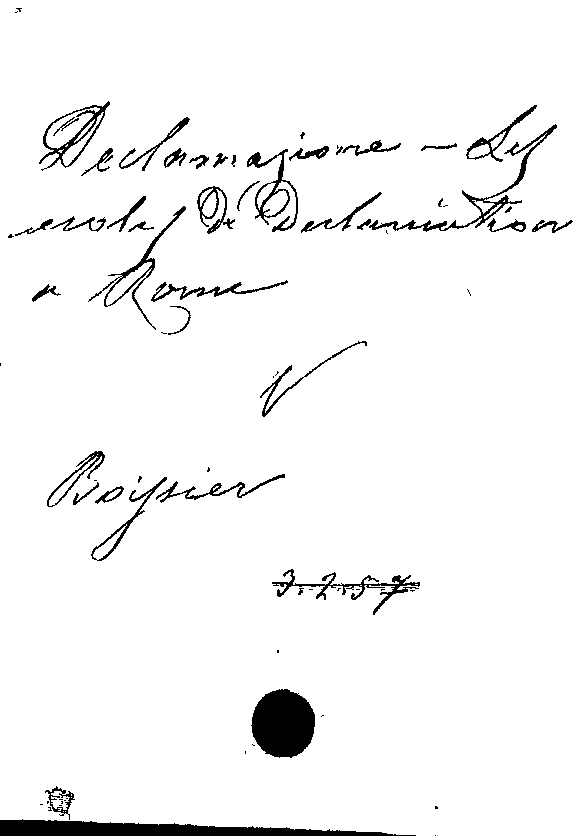 Declamazione - Les
ecoles de Declamation
a Rome
V
Boissier
3.2.5.7